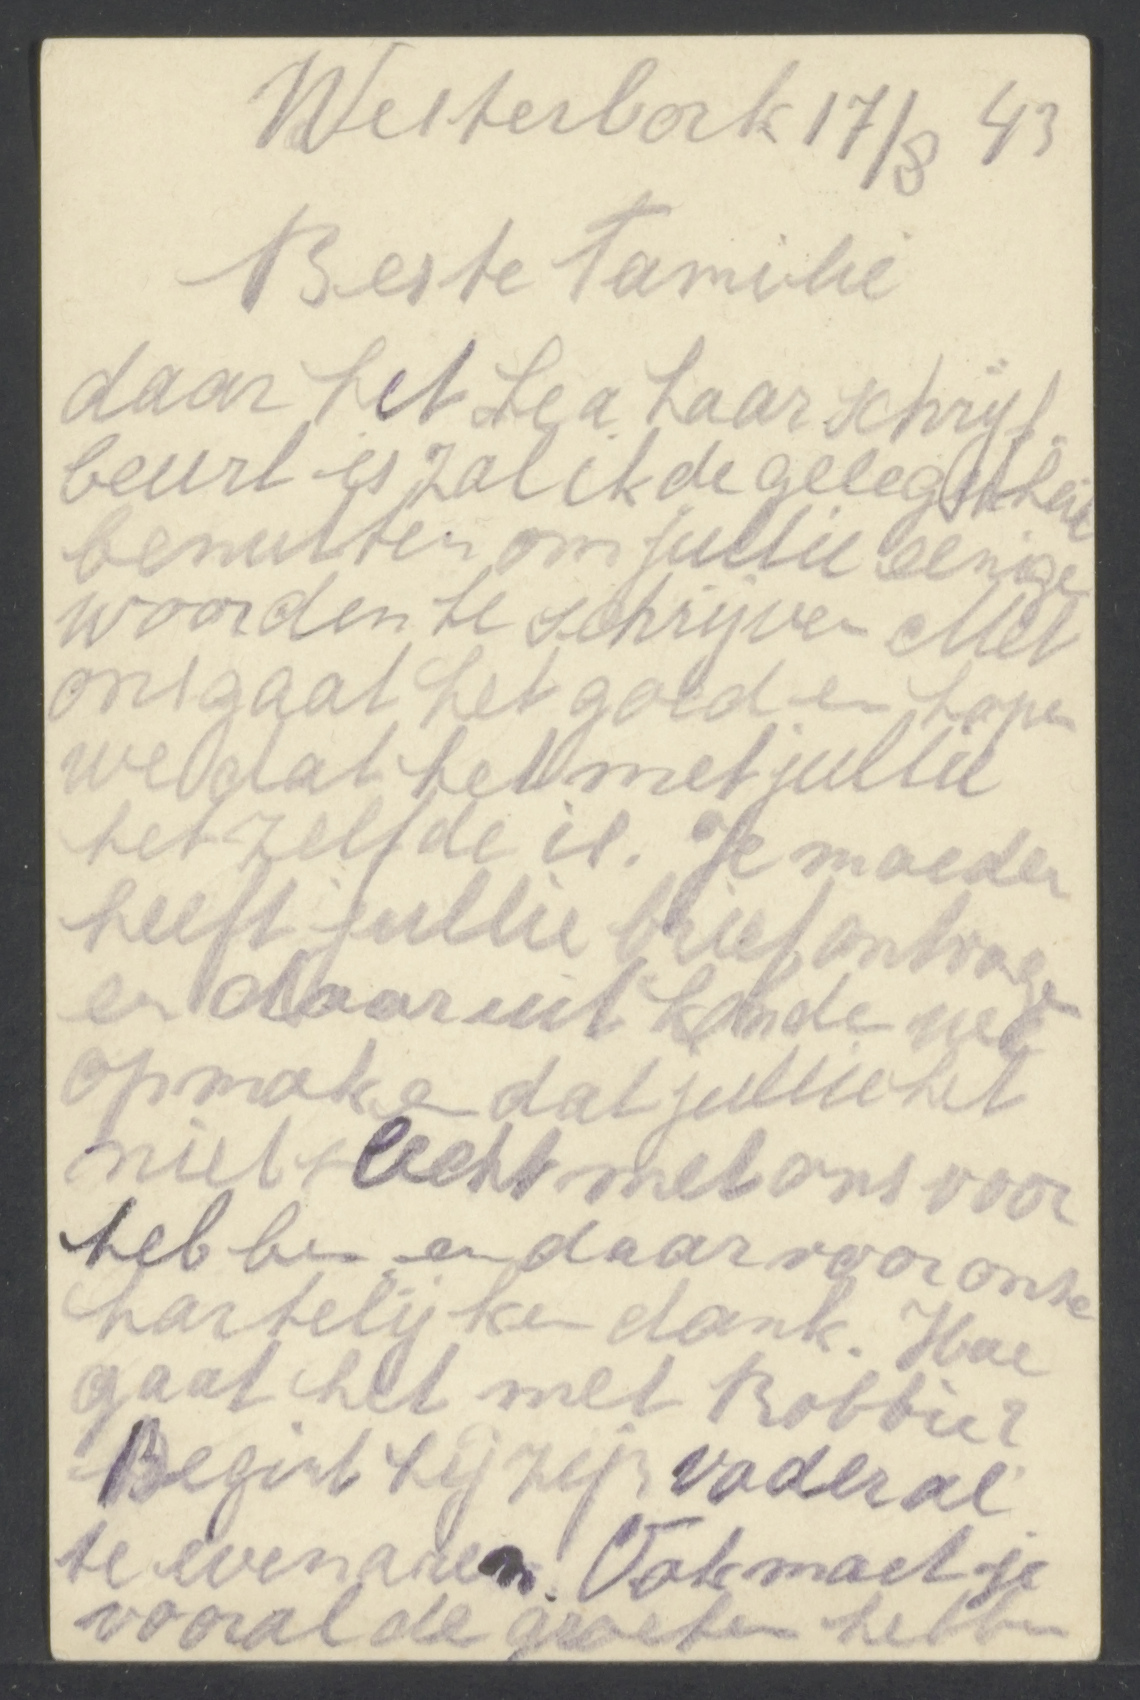 Westerbork 17/8 43
Beste Familie
daar het Lea haar schrijf
beurt is zal ik de gelegenheid
benutten om jullie eenige
woorden te schrijven Met
ons gaat het goed en hopen
we dat het met jullie
het zelfde is. Je moeder
heeft jullie brief ontvangen
en daar uit konde we
opmaken dat jullie het
niet slecht met ons voor
hebben en daar voor onze
hartelijken dank. Hoe
gaat het met Robbie?
Begint hij zijn vader al
te evenaren. Ook moet je
vooral de groeten hebben